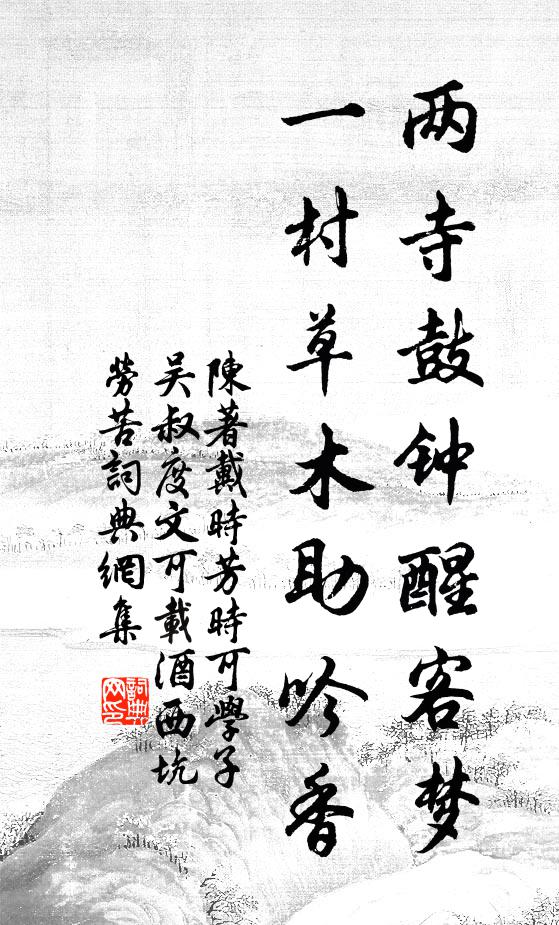 两寺鼓钟醒客梦
一村草木助吟香
陳著戴時芳時可學子
吴叔度文可載酒西坑
勞苦詞典網集
詞典网印